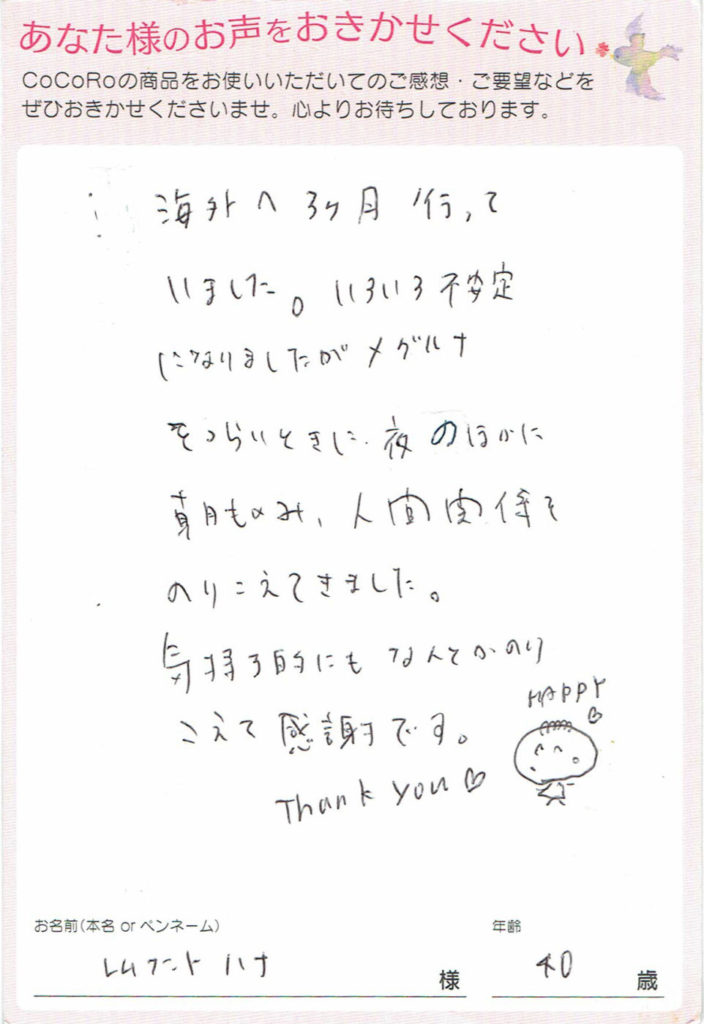 あなた様のお声をおきかせください
CoCoRoの商品をお使いいただいてのご感想・ご要望などを
ぜひおきかせくださいませ。心よりお待ちしております。
海外へ3ヶ月行って
いました。いろいろ不安定
になりましたがメグルナ
をつらいときに夜のほかに
朝ものみ、人間関係を
のりこえてきました。
気持ち的にもなんとかのり
こえて感謝です。
HAPPY♡
Thank you♡
お名前(本名 or ペンネーム)
ハナ 様
年齢
40 歳